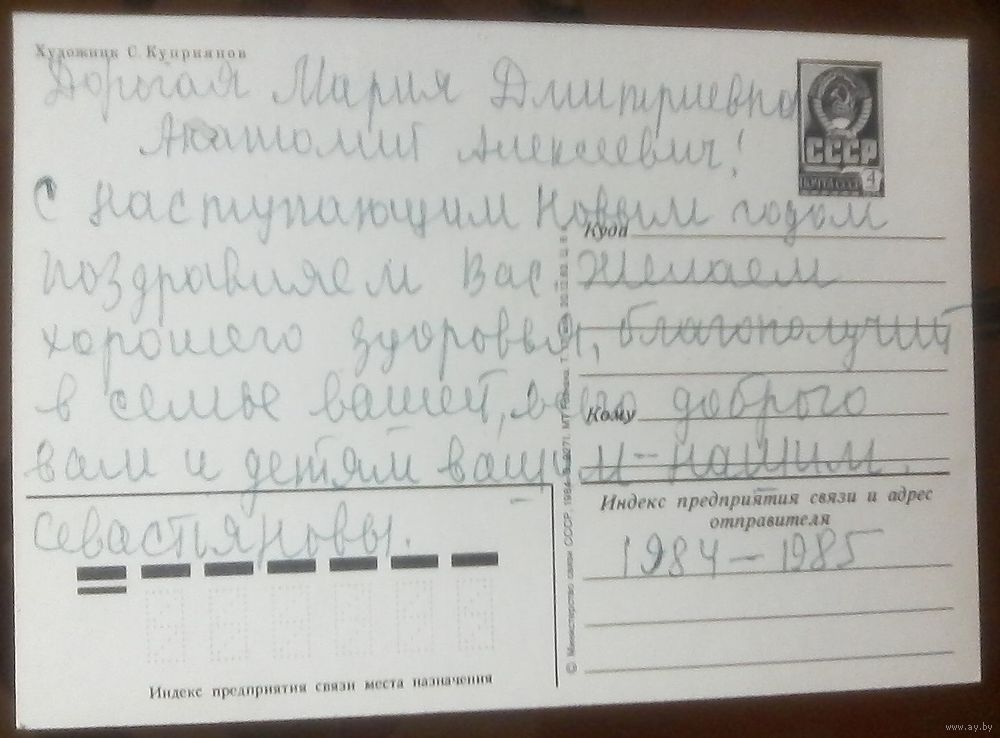 Художник С. Куприянов
Дорогая Мария Дмитриевна
Анатолий Алексеевич!
СССР
4
С наступающим Новым годом
Куда
поздравляем Вас Желаем
хорошего здоровья, благополучий
в семье вашей, всего доброго
Кому
вам и детям вашим-нашим.
Севастьяновы.
Индекс предприятия связи и адрес
отправителя
1984-1985
© Министерство связи СССР, 1984
Индекс предприятия связи места назначения
www.ay.by